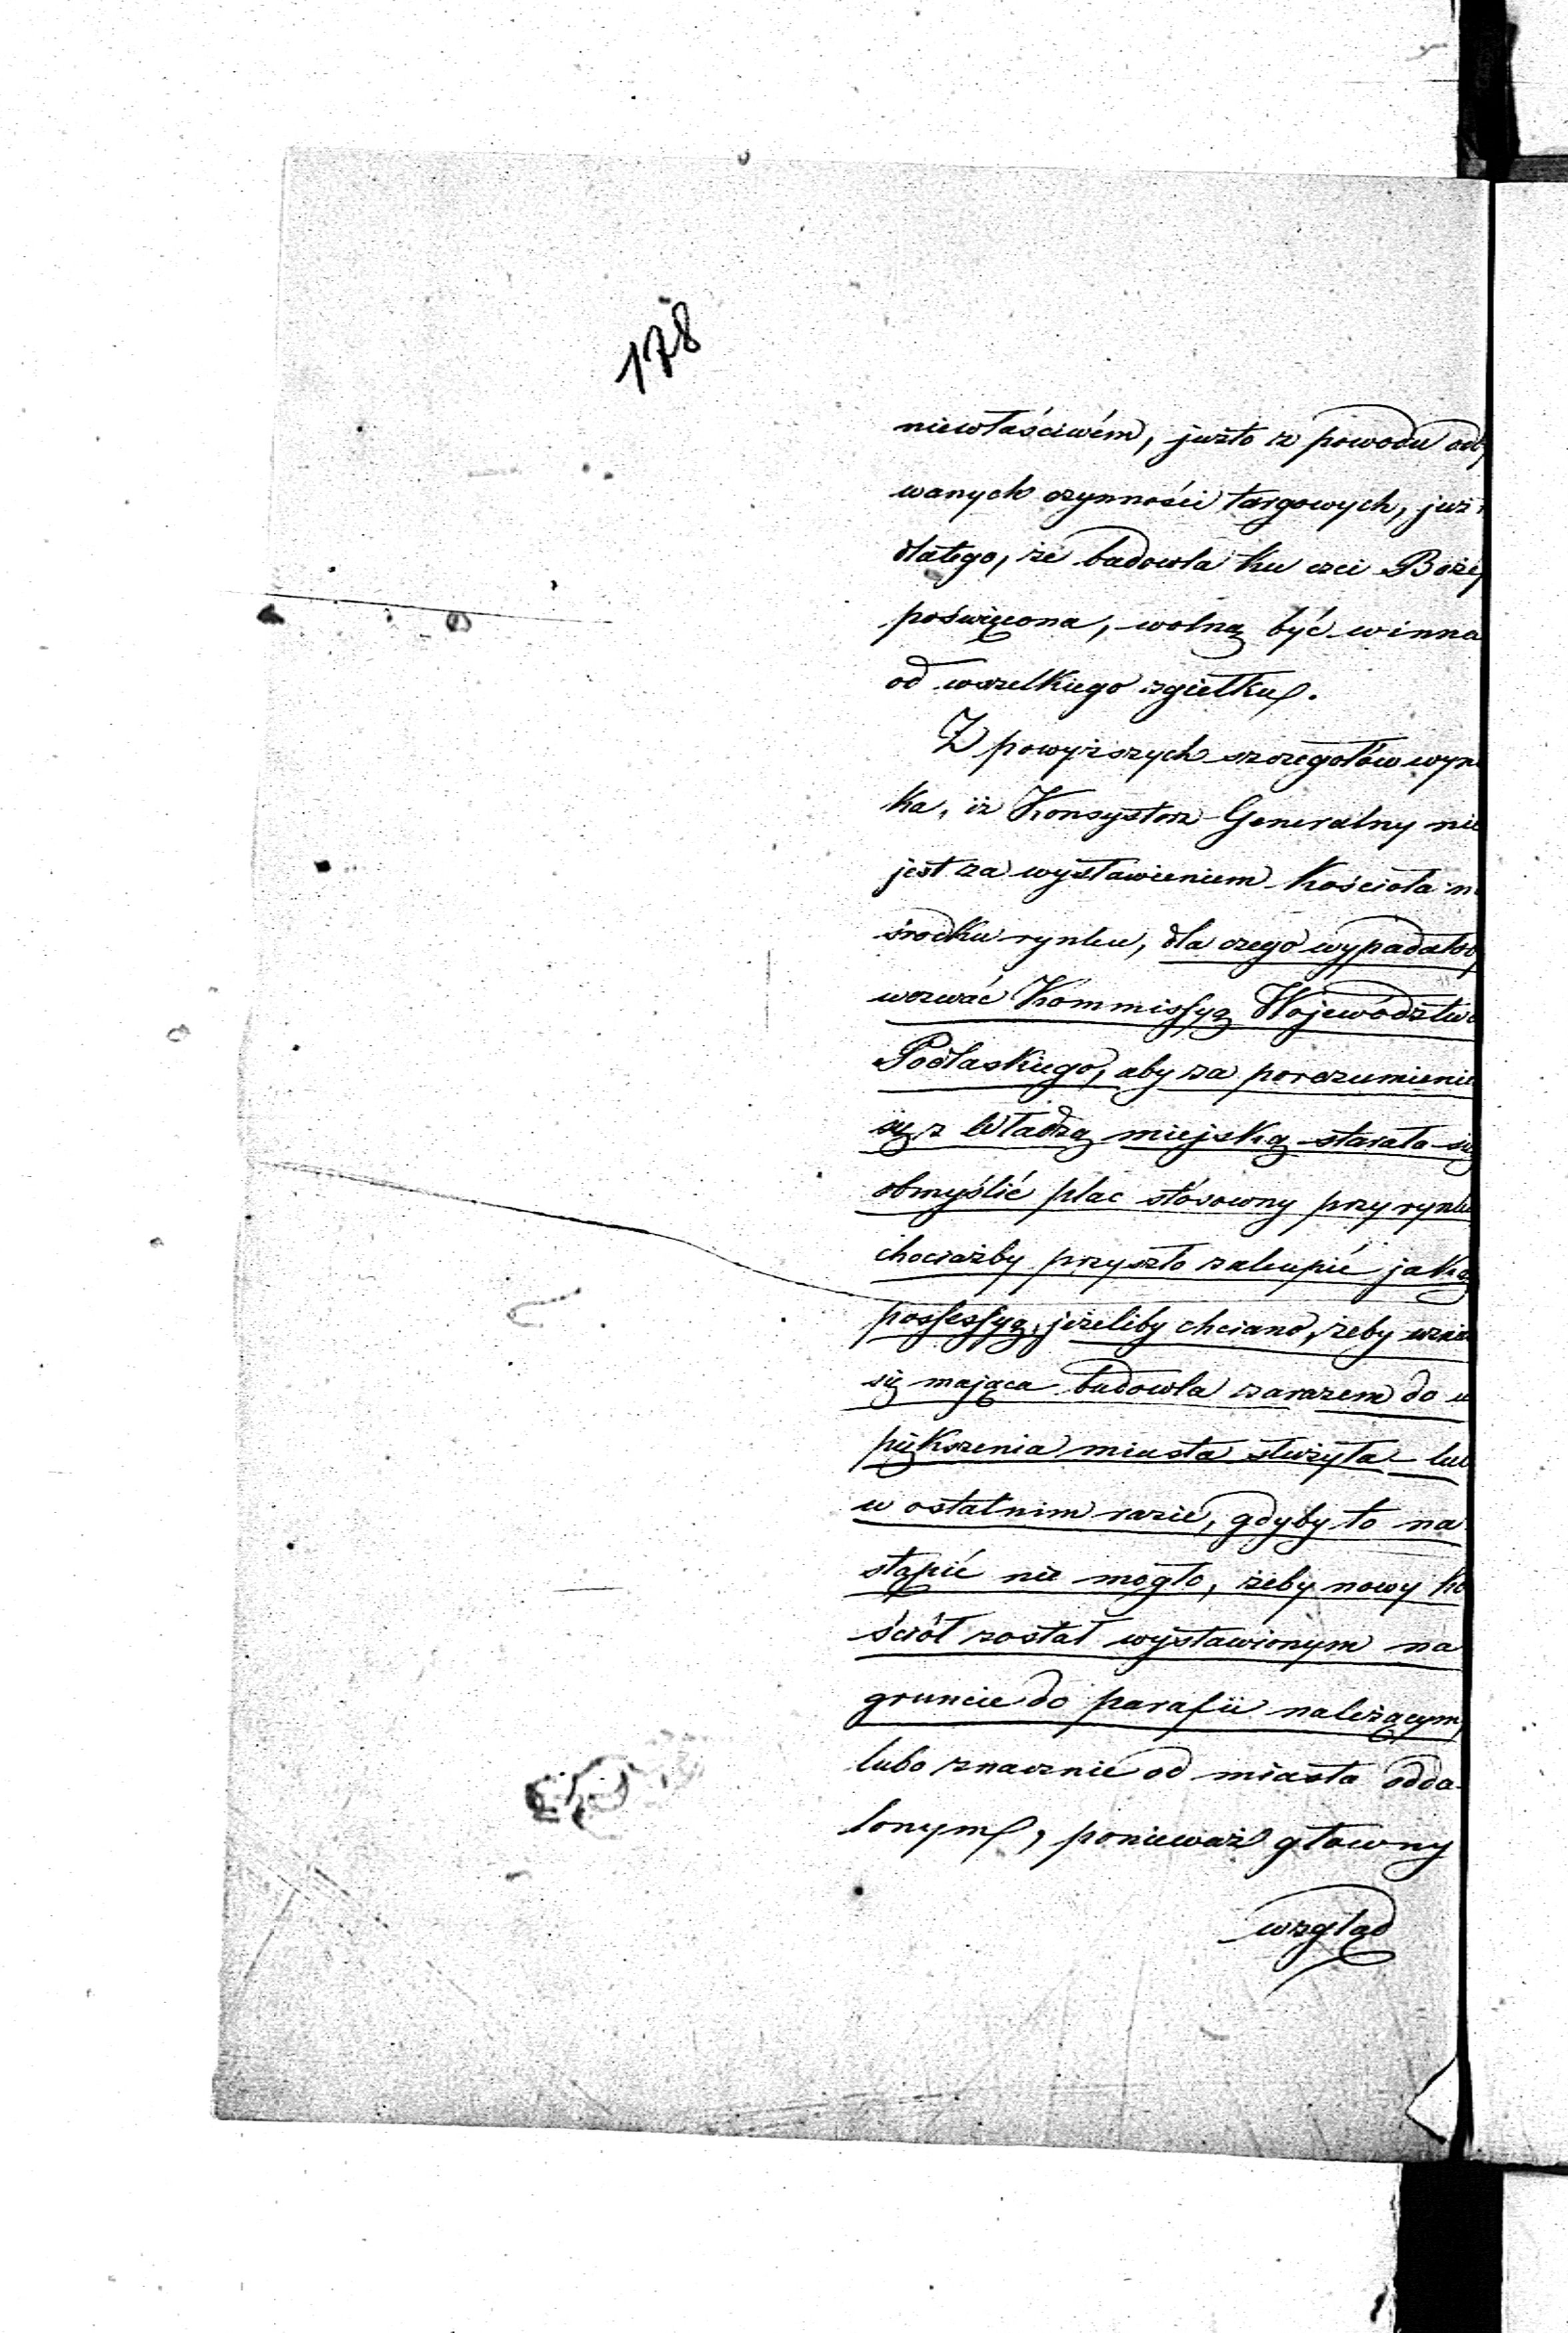 178
niewłaściwém, jużto z powodu odby
wanych czynności targowych, już
dlatego, że budowla ku czci Bożej
poświęcona, wolną być winna
od wszelkiego zgiełku.
Z powyższych szczegółów wyni
ka, iż Konsystorz Generalny nie
jest za wystawieniem Kościoła na
środku rynku, dla czego wypadało
wezwać Kommissyą Województwa
Podlaskiego, aby za porozumienie
się z Władzą miejską starała się
obmyślić plac stósowny przy rynku
chociażby przyszło zakupić jaką
possessyą, jeżeliby chciano, żeby
się mająca budowla zarazem do u
piększenia miasta służyła lub
w ostatnim razie, gdyby to na
stąpić nie mogło, żeby nowy ko
ściół został wystawionym na
gruncie do parafii należącym,
lubo znacznie od miasta odda
lonym, ponieważ główny
wzgląd